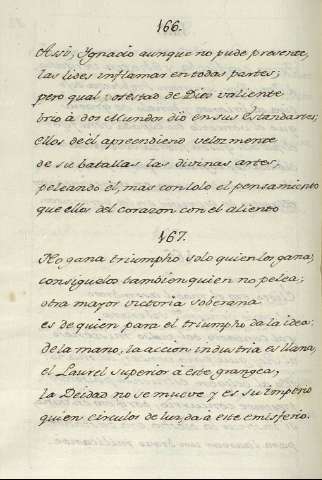 166.
Assi, Ignacio aunque no pude presente,
las lides inflamar en todas partes;
pero qual potestad de Dios valiente
brio à dos Mundos dio en sus Estandartes;
ellos de èl aprendiend velozmente
de su batallas las divinas artes,
peleando èl, mas con solo el pensamiento
que ellos del corazon con el aliento
167.
No gana triumpho solo quien los gana;
consiguelos tambien quien no pelea;
otra mayor victoria soberana
es de quien para el triumpho da la idea:
de la mano, la accion industria es llana,
el Laurel superior à este grangea;
la Deidad no se mueve y es su Imperio
quien circulos de luz da à este emisferio.